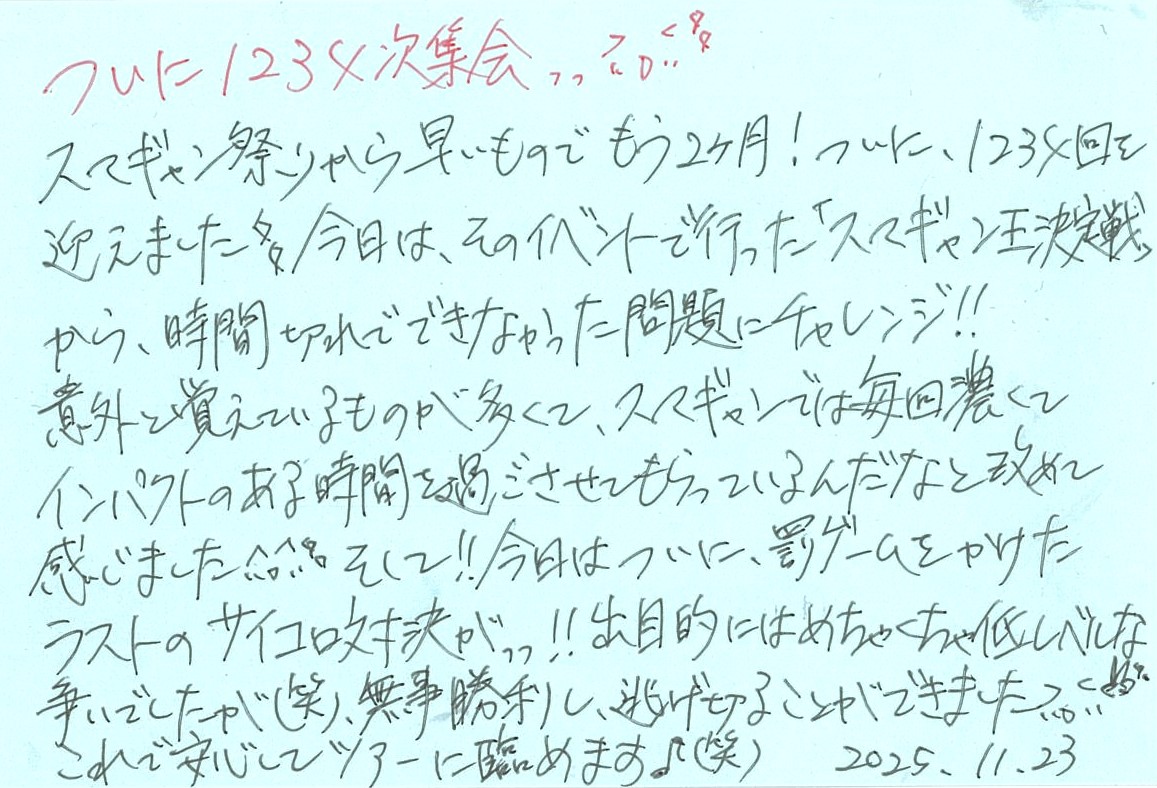 ついに1234次集会,,
スマギャン祭りから早いものでもう2ヶ月!ついに、1234回を
迎えました 今日は、そのイベントで行った「スマギャン王決定戦」
から、時間切れでできなかった問題にチャレンジ!!
意外と覚えているものが多くて、スマギャンでは毎回濃くて
インパクトのある時間を過ごさせてもらっているんだなと改めて
感じました そして!!今日はついに、罰ゲームをかけた
ラストのサイコロ対決が,,!!出目的にはめちゃくちゃ低レベルな
争いでしたが(笑)、無事勝利し、逃げ切ることができました
これで安心してツアーに臨めます♪(笑) 2025.11.23